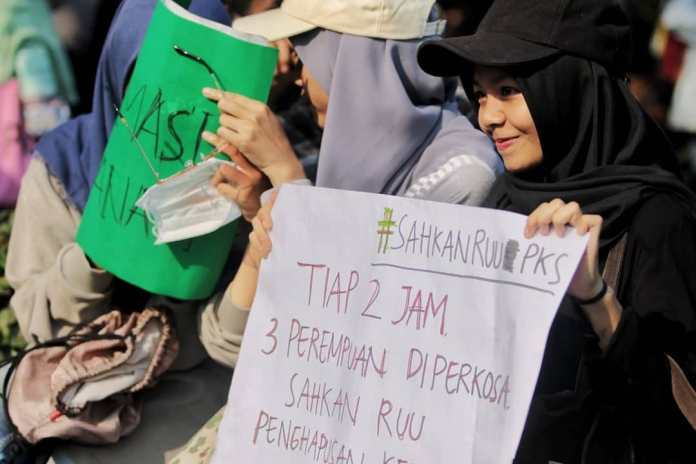 MASI
#SAHKANRUU PKS
TIAP 2 JAM
3 PEREMPUAN DIPERKOSA
SAHKAN RUU
PENGHAPUSAN